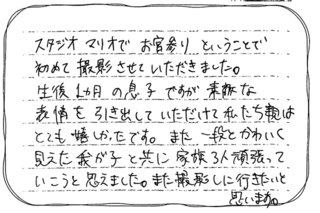 スタジオマリオで お宮参り ということで
初めて撮影させていただきました。
生後1カ月の息子ですが 素敵な
表情を引き出していただけて私たち親は
とても嬉しかったです。また一段とかわいく
見えた我が子と共に家族3人頑張って
いこうと思えました。また撮影しに行きたいと
思います。